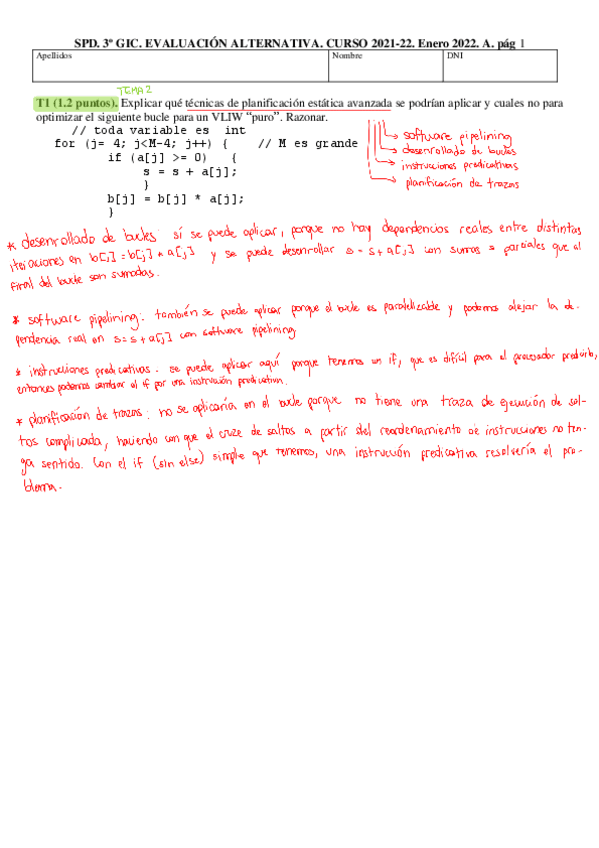 SPD. 3º GIC. EVALUACIÓN ALTERNATIVA. CURSO 2021-22. Enero 2022. A. pág 1
Apellidos Nombre DNI
TEMA 2
T1 (1.2 puntos). Explicar qué técnicas de planificación estática avanzada se podrían aplicar y cuales no para
optimizar el siguiente bucle para un VLIW “puro”. Razonar.
// toda variable es int
for (j= 4; j<M-4; j++) { // M es grande
if (a[j] >= 0) {
s = s + a[j];
}
b[j] = b[j] * a[j];
}
software pipelining
desenrollado de bucles
instrucciones predicativas
planificación de trazas
* desenrollado de bucles sí se puede aplicar, porque no hay dependencias reales entre distintas
iteraciones en b[j] = b[j] * a[j] y se puede desenrollar s = s + a[j] con sumas s parciales que al
final del bucle son sumadas.
* software pipelining: también se puede aplicar porque el bucle es paralelizable y podemos alejar la de-
pendencia real en s = s + a[j] con software pipelining
* instrucciones predicativas. se puede aplicar aquí porque tenemos un if, que es difícil para el procesador predecirlo,
entonces podemos cambiar el if por una instrucción predicativa.
* planificación de trazas: no se aplicaría en el bucle porque no tiene una traza de ejecución de sal-
tos complicada, haciendo con que el cruze de saltos a partir del reordenamiento de instrucciones no ten-
ga sentido. Con el if (sin else) simple que tenemos, una instrucción predicativa resolvería el pro-
blema.